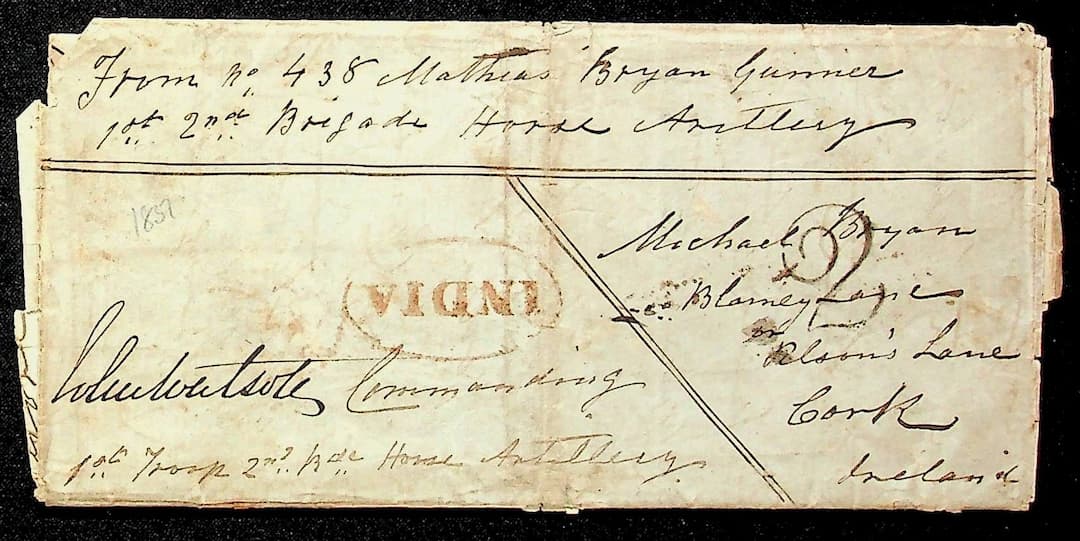 From No. 438 Mathias Bryan Gunner
1st. 2nd Brigade Horse Artillery
1837
Michael Bryan
2
INDIA
Blarney Lane
or
Lane
Cork
Ireland
Commanding
1st Troop 2nd. Bde Horse Artillery